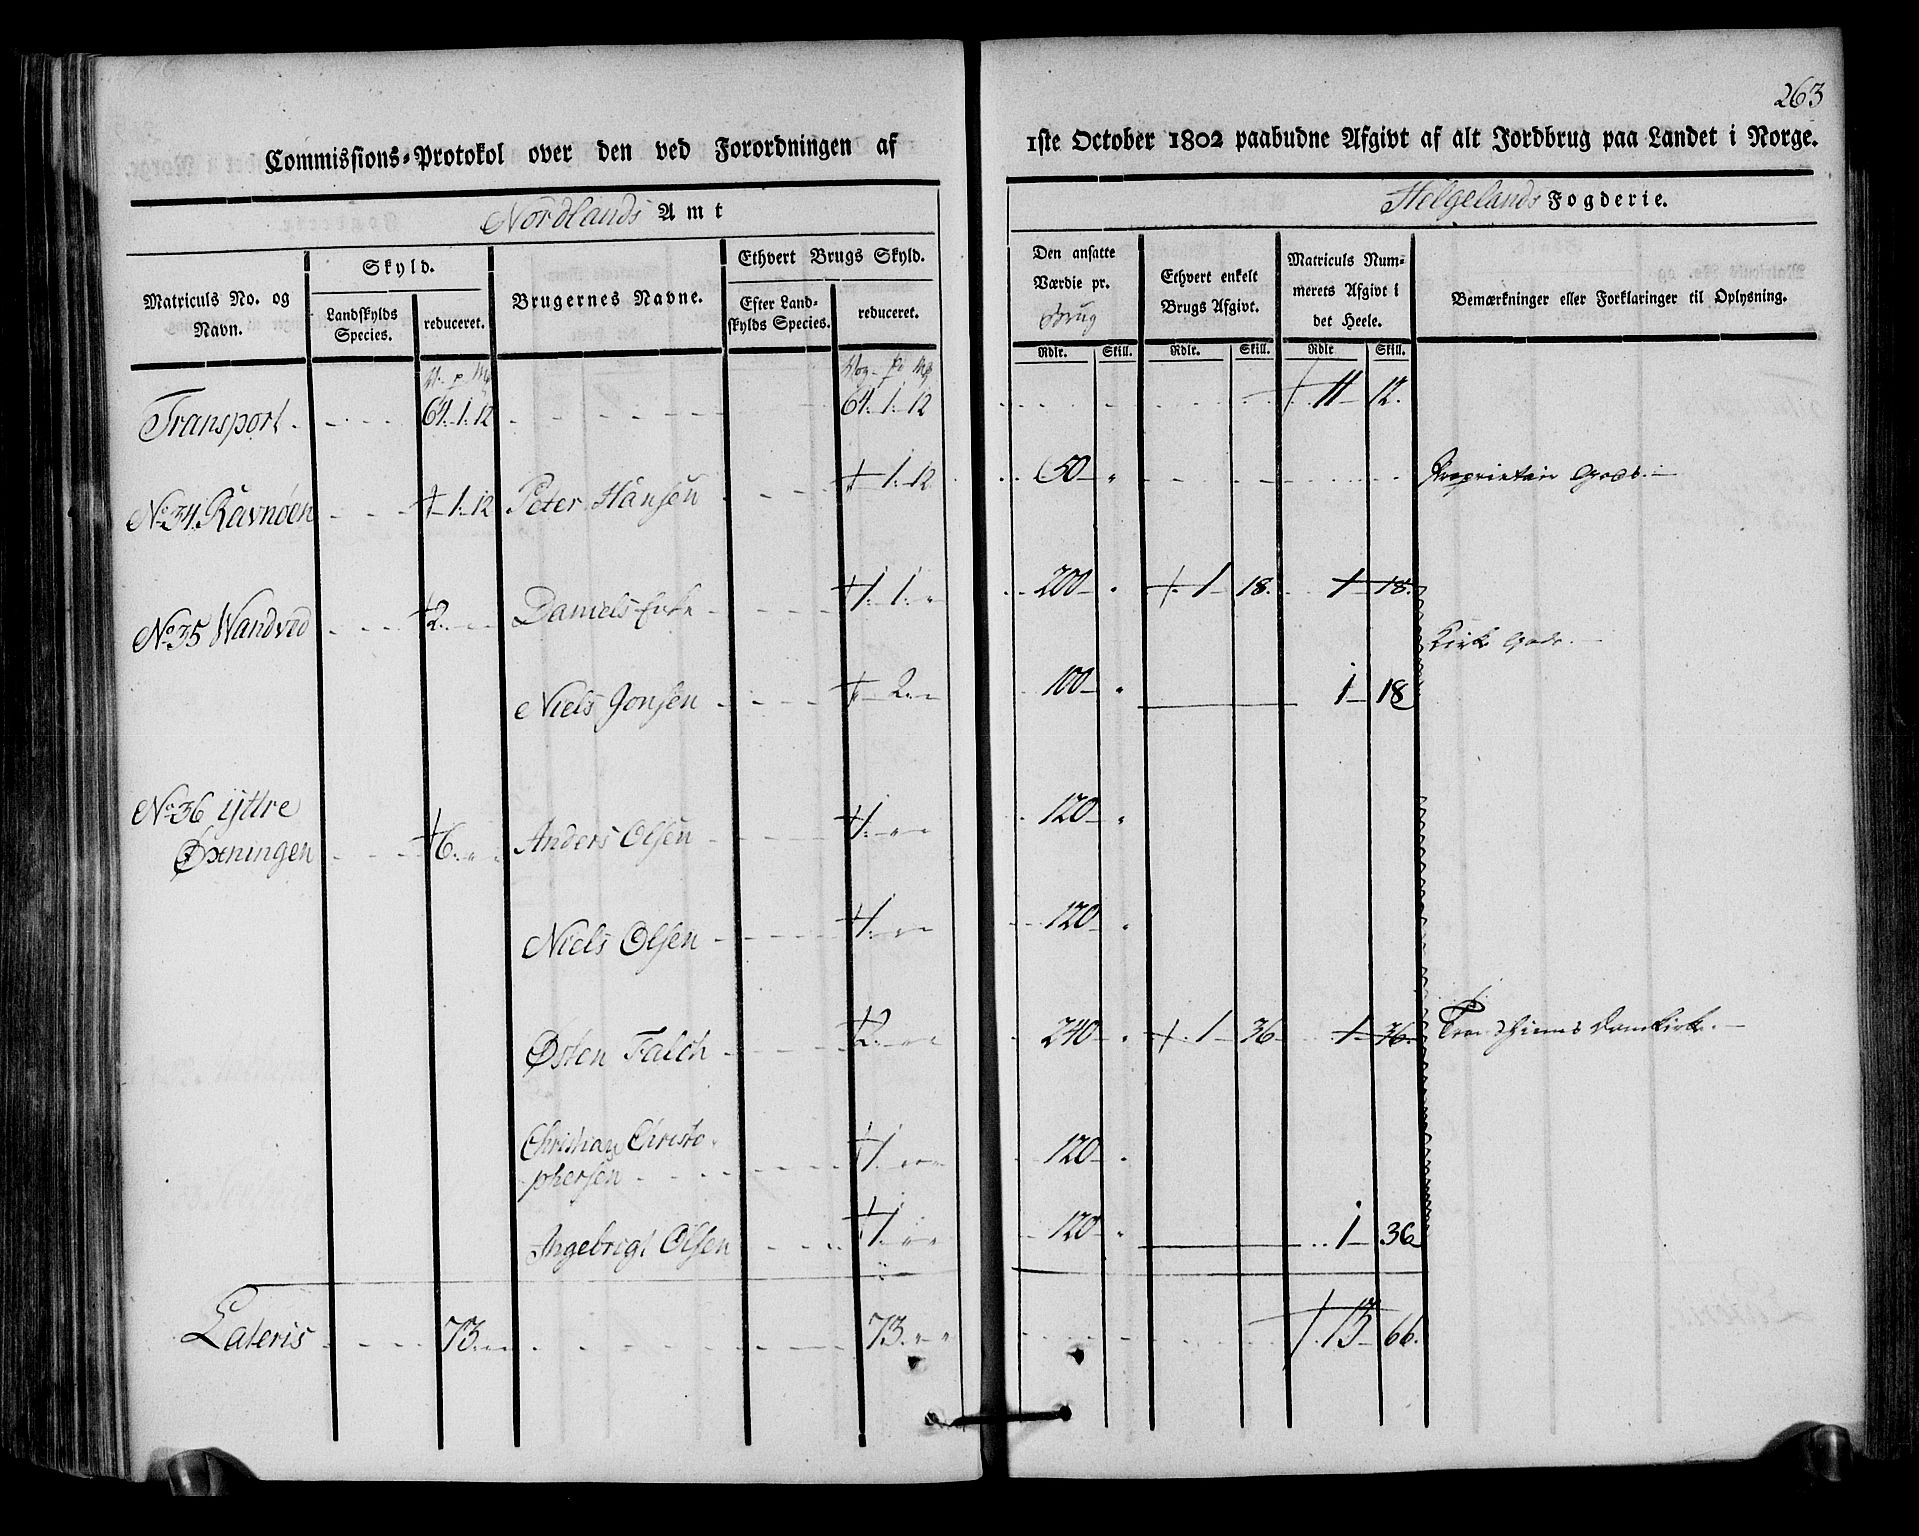 263
Commissions-Protokol over den ved Forordningen af 1ste October 1802 paabudne Afgivt af alt Jordbrug paa Landet i Norge.
Nordlands Amt
Helgelands Fogderie.
Matriculs No. og Navn.
Skyld.
Landskylds Species.
reduceret.
Brugernes Navne.
Ethvert Brugs Skyld.
Efter Landskylds Species.
reduceret.
Den ansatte Værdie pr. Brug
Ethvert enkelt Brugs Afgivt.
Matriculs Nummerets Afgivt i det Heele.
Bemærkninger eller Forklaringer til Oplysning.
Rdlr. Skill. Rdlr. Skill. Rdlr Skill.
Transport 64. 1. 12 64. 1. 12 11 12.
No 34 Ravnøen 1. 12 Peter Hansen 1. 12 50 Proprietair Gods.
No 35 Wandved 2. Daniels 1. 200 1 18. 1 18.
Kirke Gods.
Niels Jonsen 2. 100 1 18
No 36 ijttre
Øxningen 6. Anders Olsen 1. 120
Niels Olsen 1. 120
Østen Falch 2. 240 1 36 1 36. Trondhiems Domkirke.
Christian Christo-
phersen 1. 120
Ingebrigt Olsen 1. 120 1 36
Lateris 73. 73. 13 66.